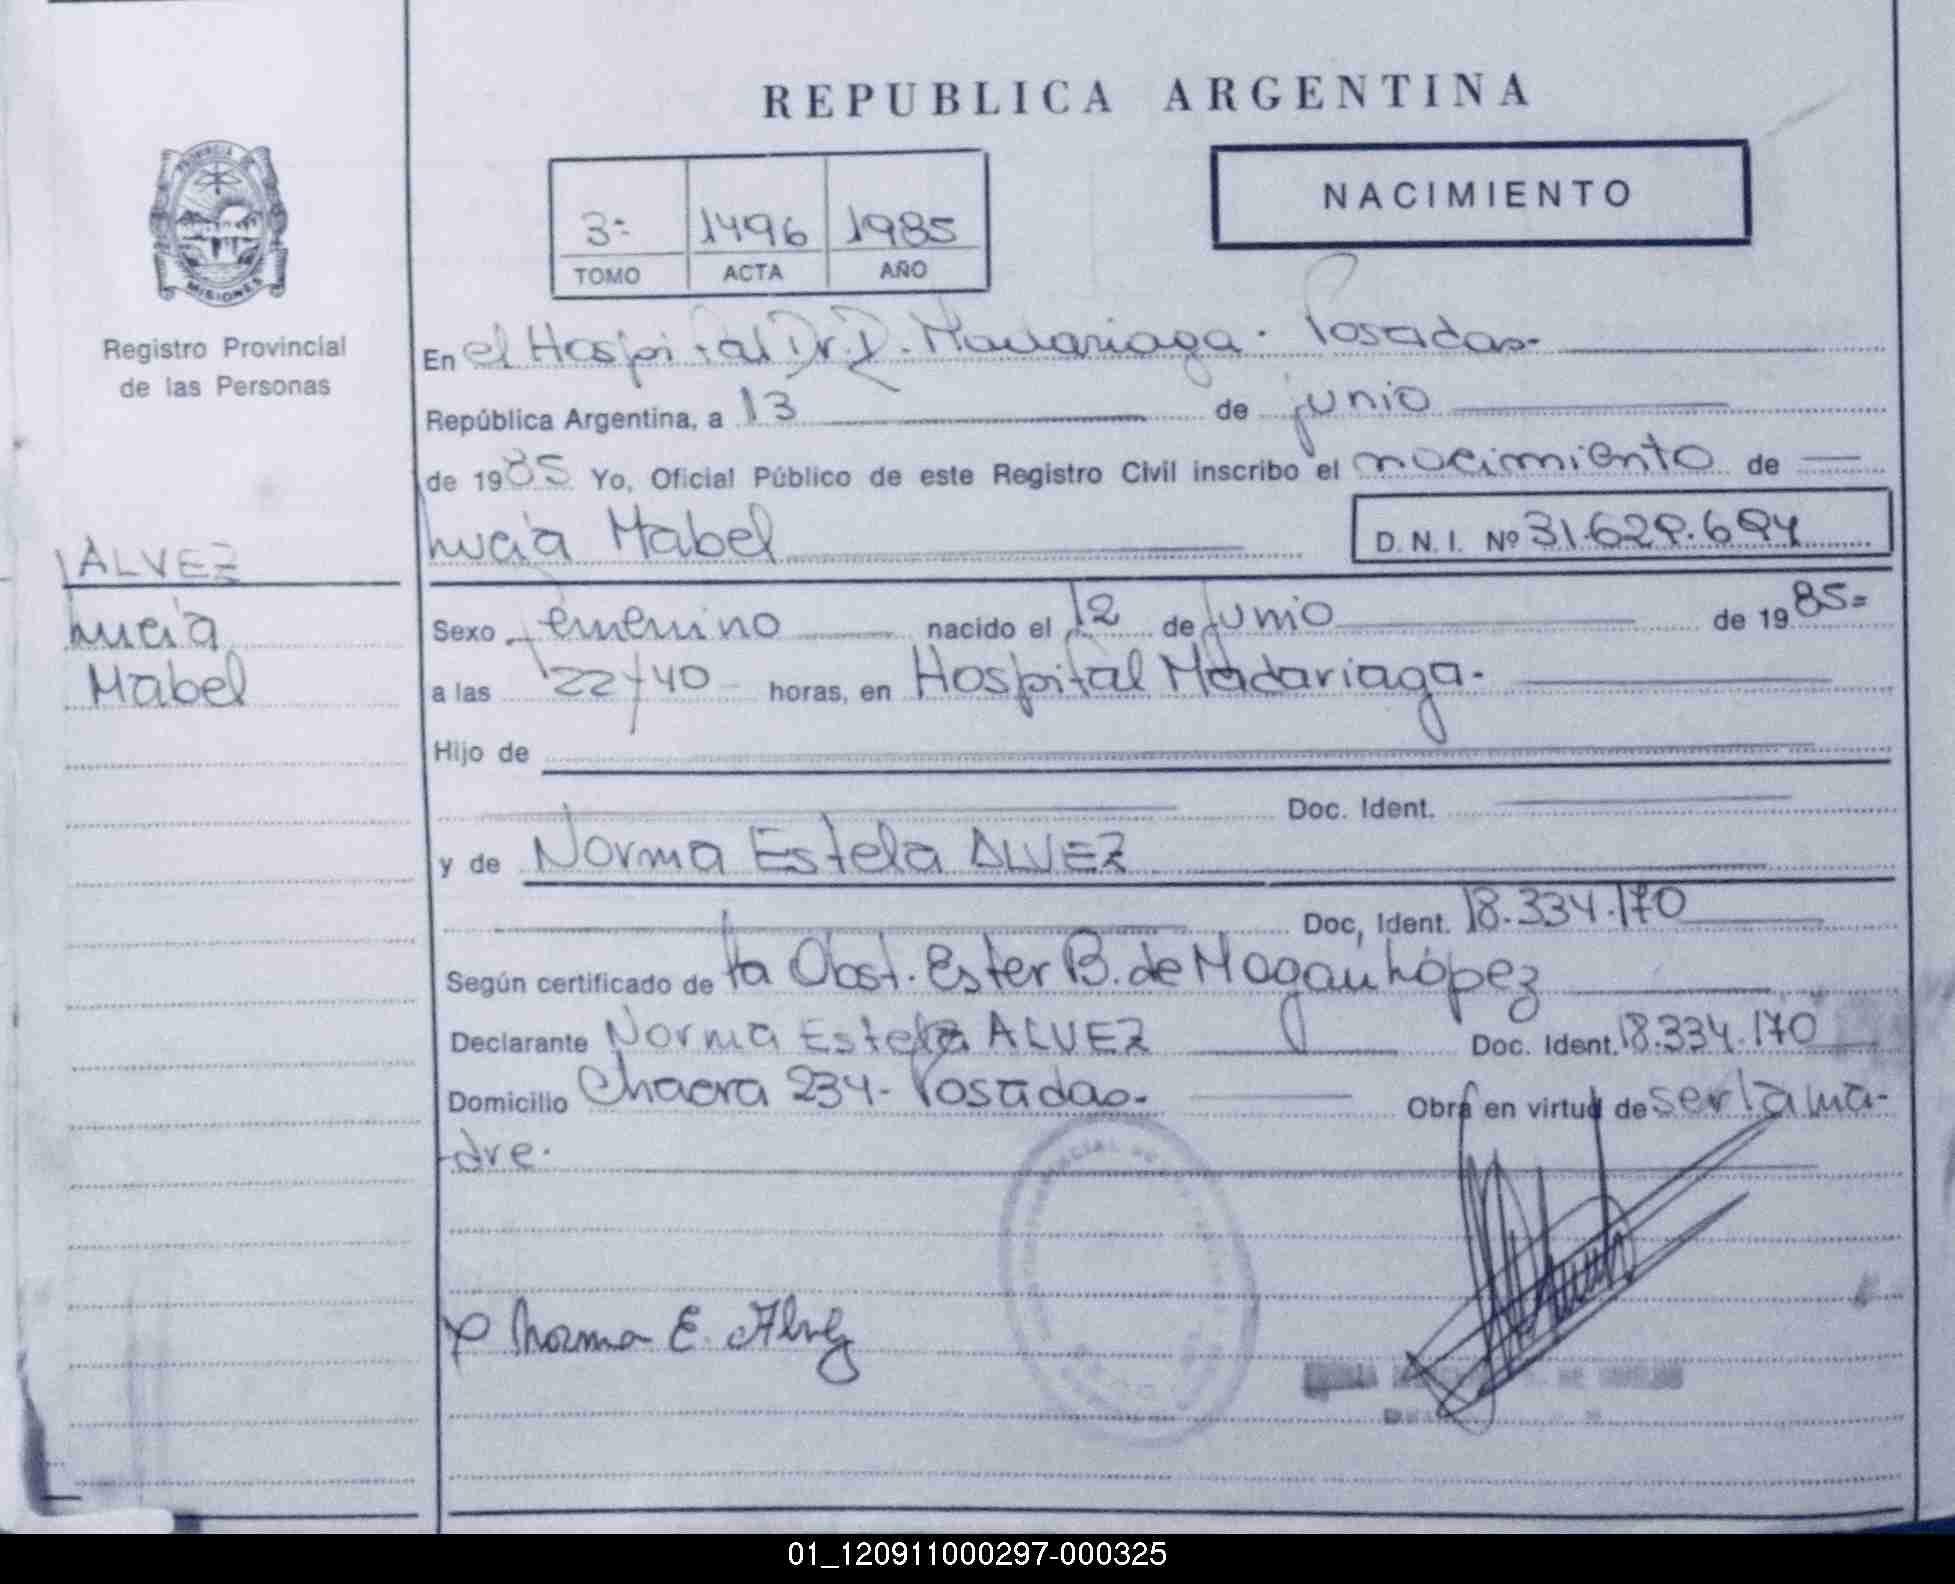 REPUBLICA ARGENTINA
PROVINCIA DE
MISIONES
Registro Provincial
de las Personas
3=
1496
1985
TOMO
ACTA
AÑO
NACIMIENTO
En el Hospital Dr. R. Madariaga. Posadas.
República Argentina, a 13 de junio
de 1985 Yo, Oficial Público de este Registro Civil inscribo el nacimiento de
Lucía Mabel
D. N. I. Nº 31.629.694
ALVEZ
Lucía
Mabel
Sexo femenino nacido el 12 de Junio de 1985=
a las 22/40 horas, en Hospital Madariaga.
Hijo de
Doc. Ident.
y de Norma Estela ALVEZ
Doc, Ident. 18.334.170
Según certificado de la Obst. Ester B. de López
Declarante Norma Estela ALVEZ Doc. Ident. 18.334.170
Domicilio Chacra 234- Posadas. Obra en virtud de ser la ma-
dre.
Norma E. Alvez
01_120911000297-000325